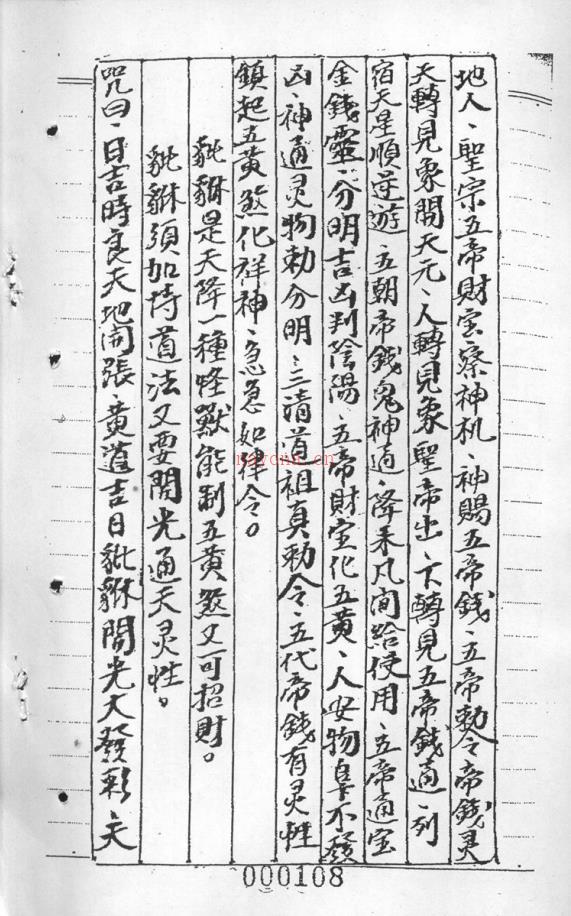 地人、聖宗五帝財宝察神机、神賜五帝錢、五帝勅令帝錢灵
天轉見象開天元、人轉見象聖帝出、下轉見五帝錢通、列
宿天星順逆遊、五朝帝錢鬼神通、降来凡间給使用、五帝通宝
金錢靈、分明吉凶判陰陽、五帝財宝化五黃、人安物阜不發
凶、神通灵物勅分明、三清道祖真勅令、五代帝錢有灵性
鎖起五黃煞化祥神、急急如律令。
貔貅是天降一種怪獸能制五黃煞又可招財。
貔貅須加持道法又要開光通天灵性。
咒曰、日吉時良天地開張、黃道吉日貔貅開光大發彩、天
nayona.cn
000108